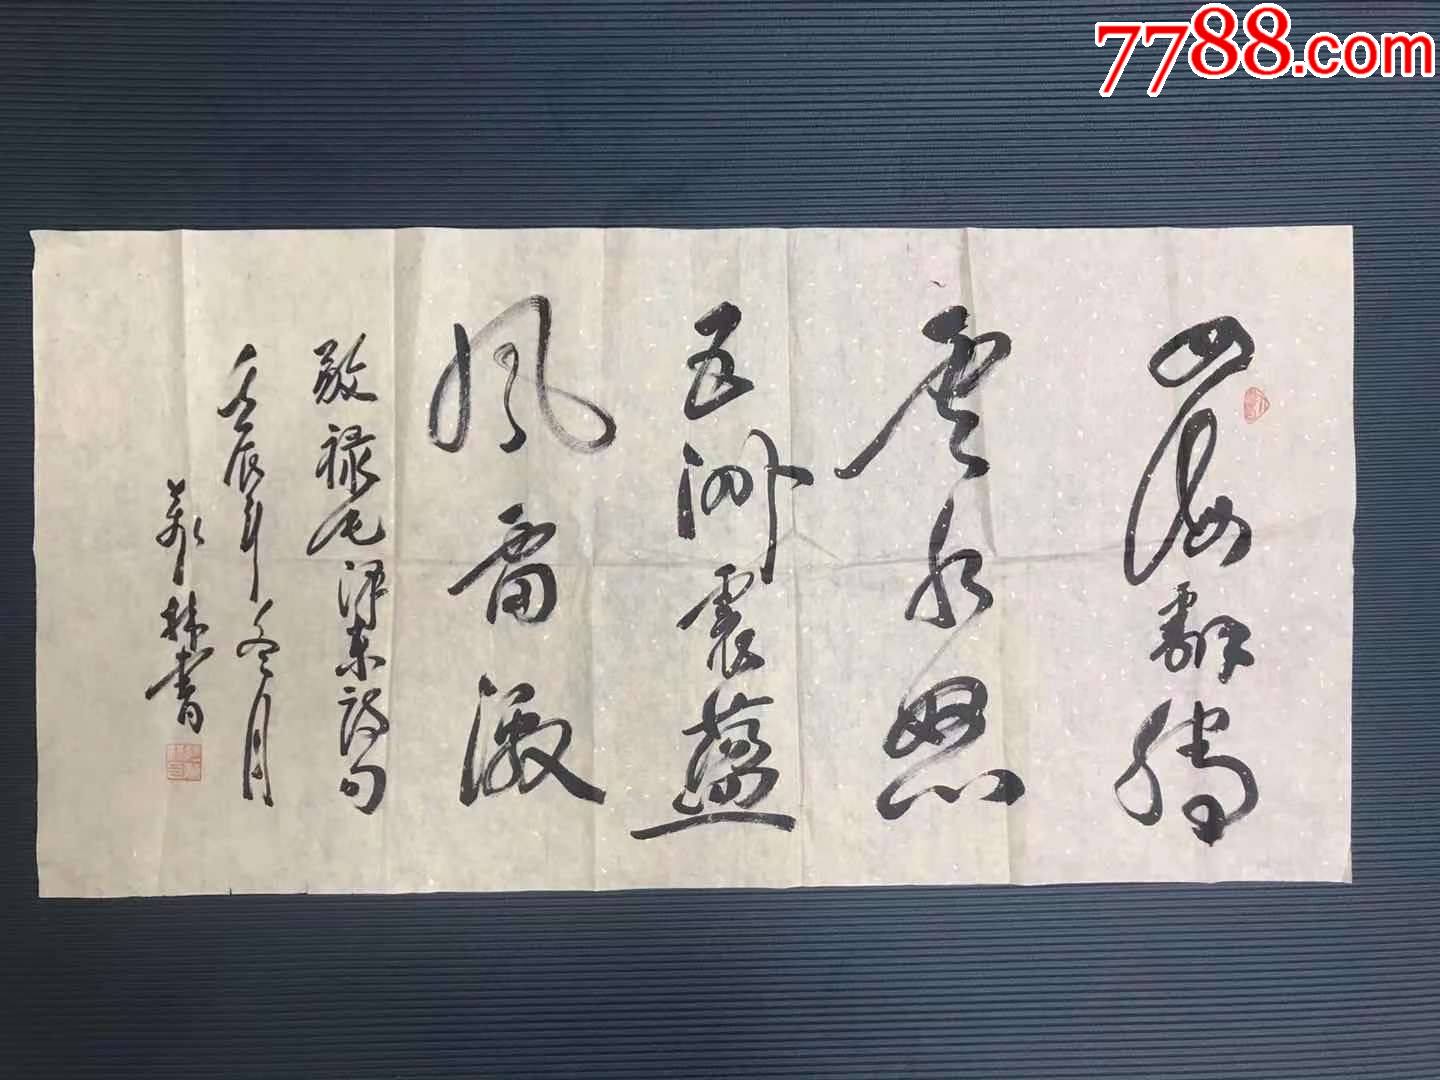 7788.com
四海翻騰
雲水怒
五洲震蕩
風雷激
敬禄毛泽东诗句
壬辰年冬月
林書